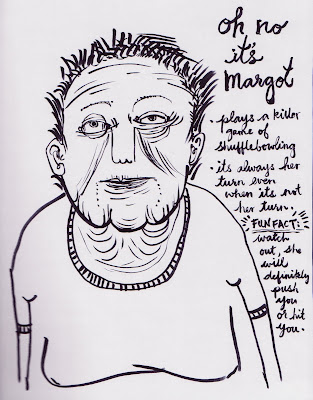 oh no
it's
margot
• plays a killer
game of
shufflebowling
• its always her
turn even
when its not
her turn.
FUN FACT:
watch
out, she
will
definitely
push
you
or hit
you.